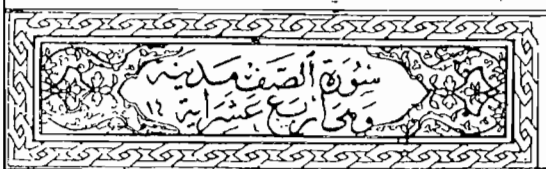 سُورَةُ الصَّفِّ مَدَنِيَّة
وَهِيَ أَرْبَعَ عَشْرَ آيَة ١٤